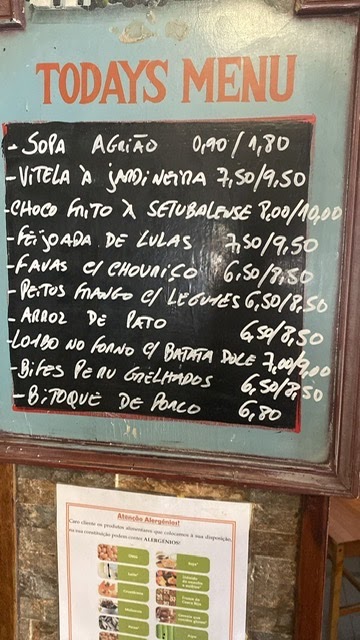 TODAYS MENU
- SOPA AGRIÃO 0,90/1,80
- VITELA À JARDINEIRA 7,50/9,50
- CHOCO FRITO À SETUBALENSE 8,00/10,00
- FEIJOADA DE LULAS 7,50/9,50
- FAVAS C/ CHOURIÇO 6,50/8,50
- PEITOS FRANGO C/ LEGUMES 6,50/8,50
- ARROZ DE PATO 6,50/8,50
- LOMBO NO FORNO C/ BATATA DOCE 7,00/9,00
- BIFES PERU GRELHADOS 6,50/8,50
- BITOQUE DE PORCO 6,80
Atenção Alergénios!
Caro cliente os produtos alimentares que colocamos à sua disposição,
na sua constituição podem conter ALERGÉNIOS: